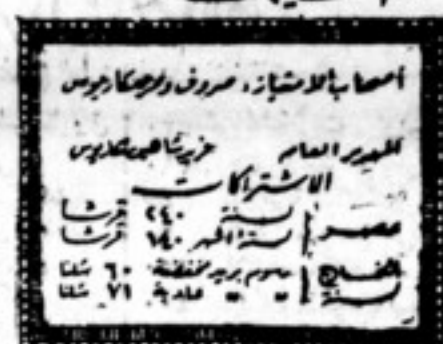 أصحاب الامتياز: صروف ونمر ومكاريوس
المدير العام
عزيز شاهين مكاريوس
الاشتراكات
مصر سنة ٢٤٠ قرشا
ستة اشهر ١٤٠ قرشا
الخارج رسوم بريد مخفضة ٦٠ شلنا
سنة " " عادية ٧١ شلنا